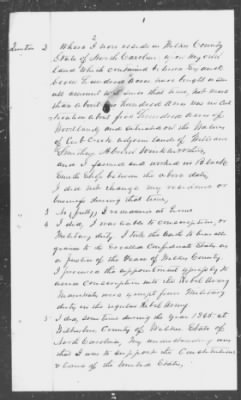 2
Question 2. Where I now reside in Wilkes County
State of North Carolina on my own
land which contained between six and
seven hundred acres have bought a
small amount since that time, not more
than about one hundred acres was in cul
tivation about five hundred acres of
Woodland, and situated on the Waters
of Cub Creek Adjoining lands of William
and I farmed and worked in Black
Smith Shop between the above dates,
I did not change my residence or
business during that time,
3 No (fully) I remained at home
4 I did, I was liable to conscription, or
Military duty. I took the oath to bear alle
giance to the so called Confederate States as
a Justice of the Peace of Wilkes County.
I procured the appointment expressly to
avoid Conscription into the Rebel Army
Magistrates were exempt from Military
duty in the regular Rebel Army.
5 I did, sometime during the year 1865 at
Wilkesboro, County of Wilkes State of
North Carolina, My understanding was
that I was to support the Constitution
& laws of the United States,